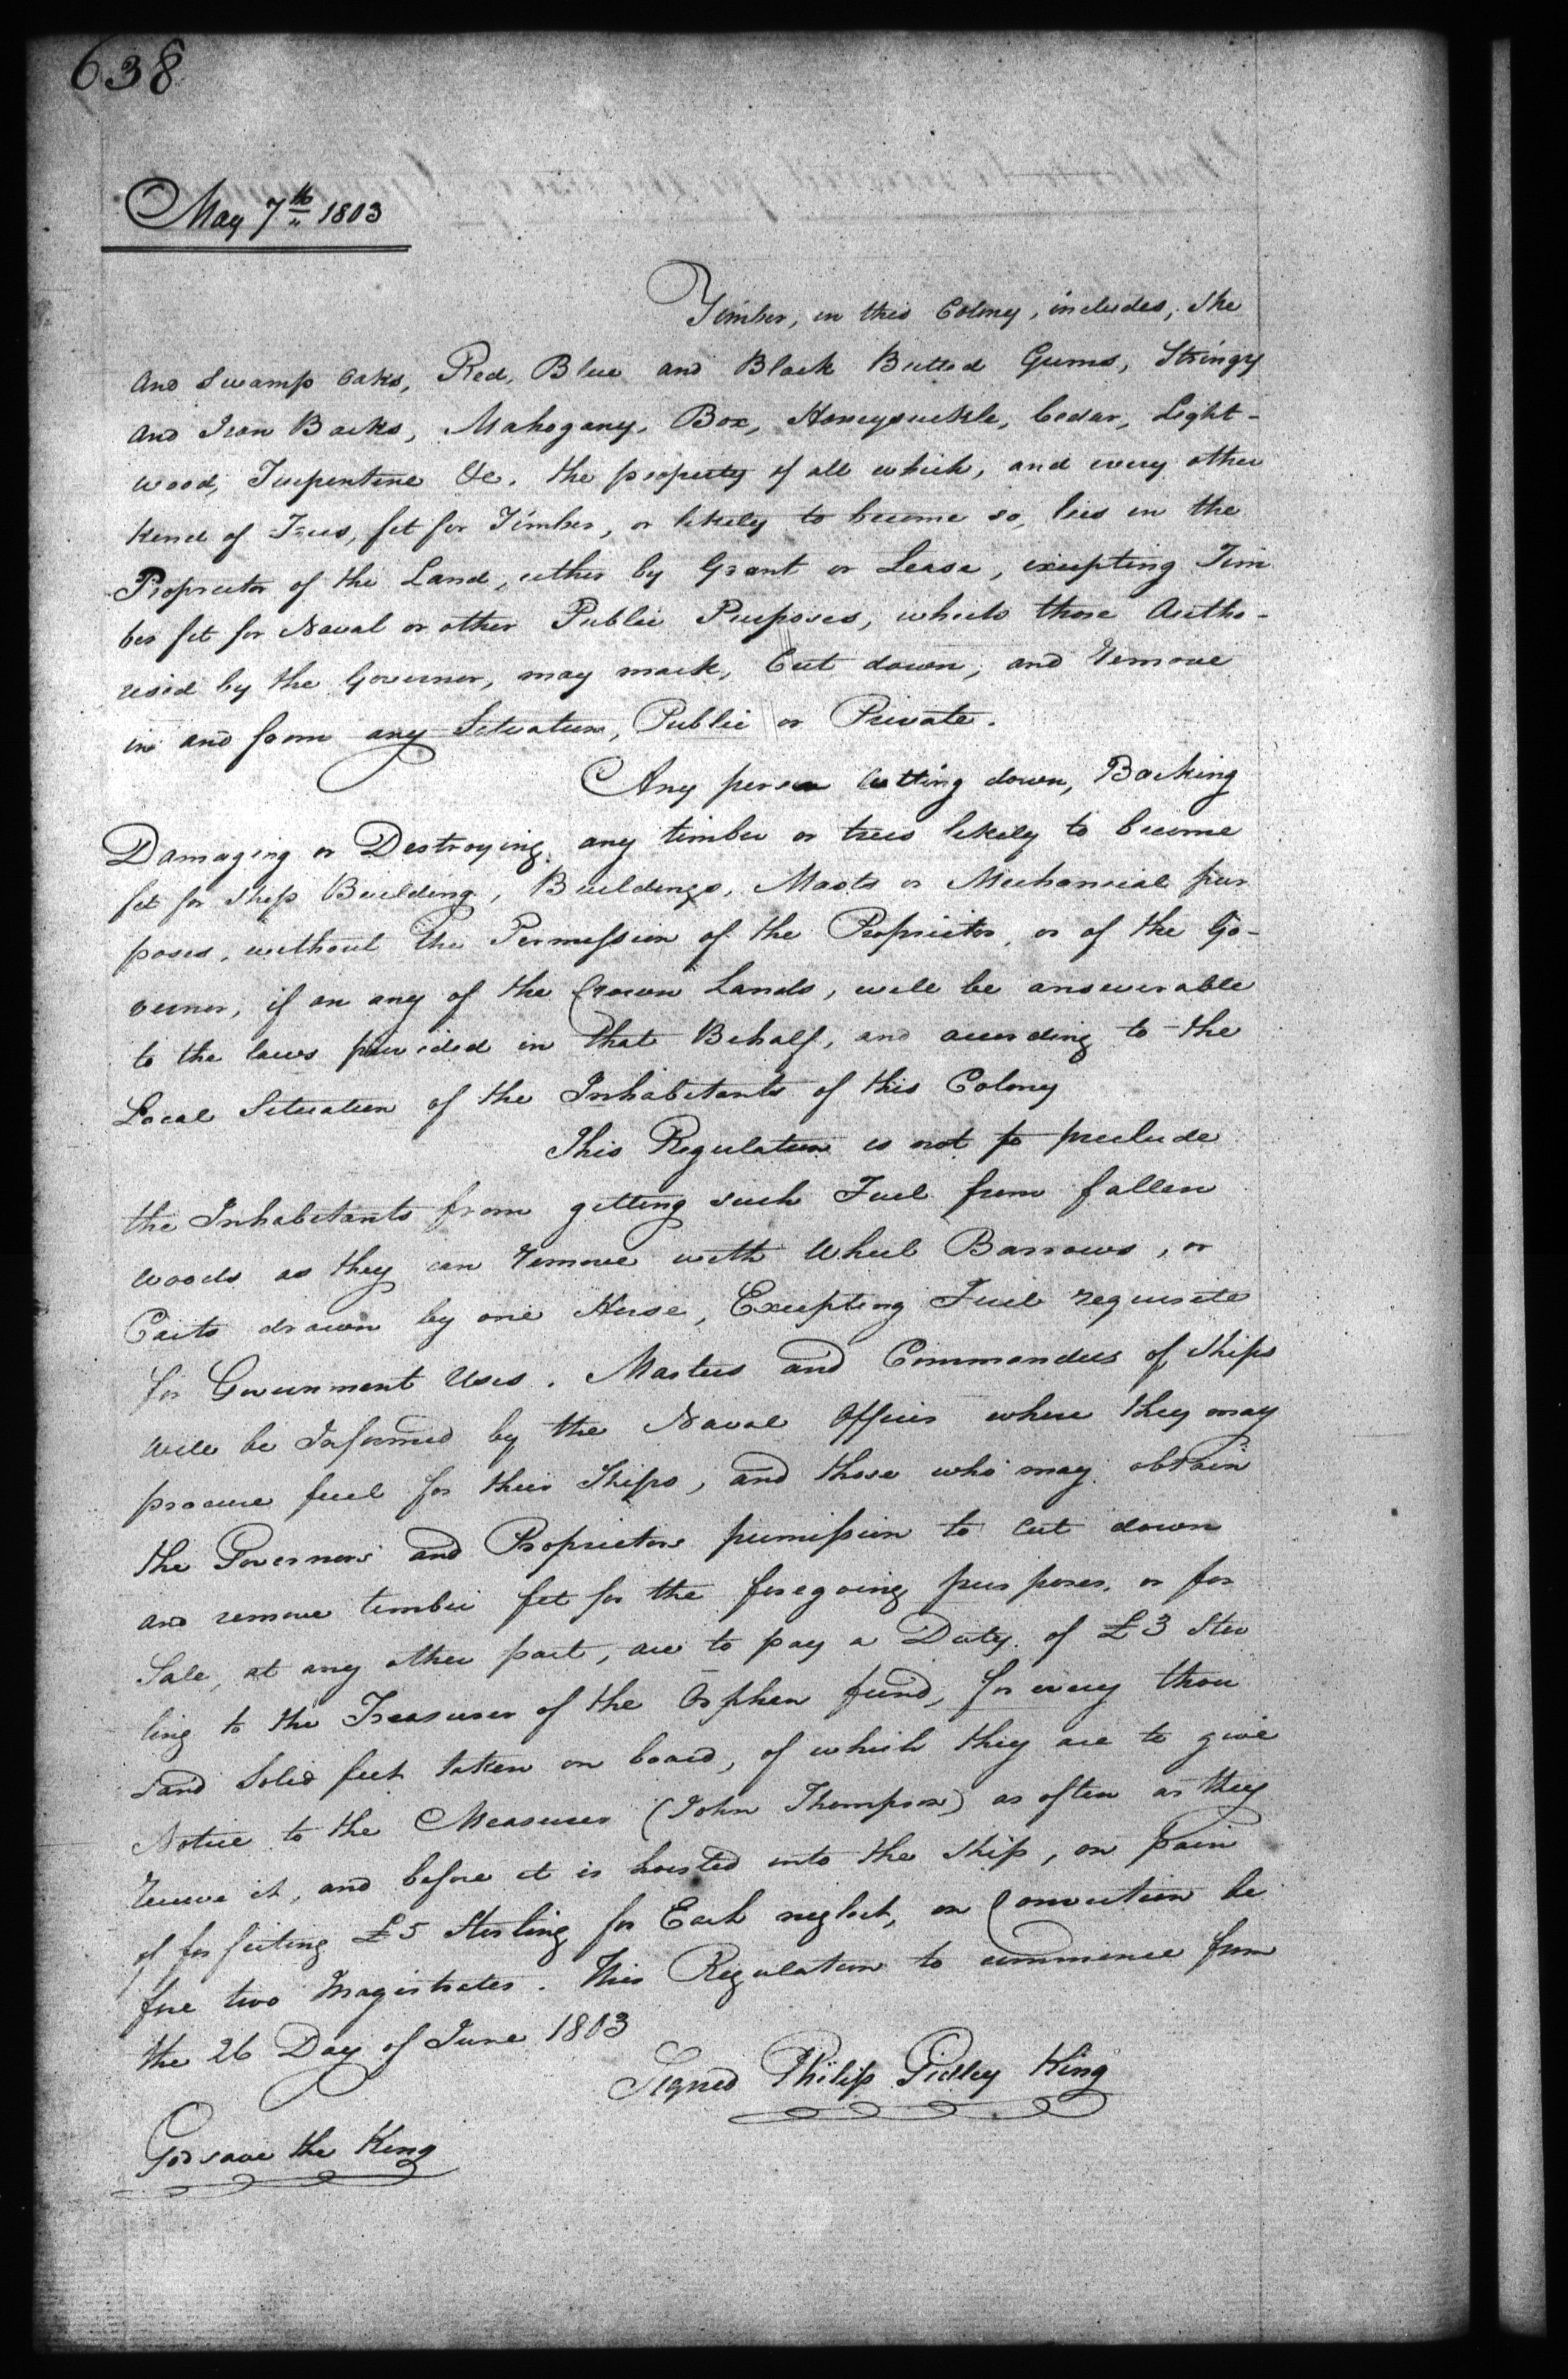 638
May 7th 1803
Timber, in this Colony, includes, the
and Swamp Oaks, Red, Blue and Black Butted Gums, Stringy
and Iron Barks, Mahogany, Box, Honeysuckle, Cedar, Light-
wood, Turpentine &c. the property of all which, and every other
kind of Trees, fit for Timber, or likely to become so, lies in the
Proprietor of the Land, either by Grant or Lease, excepting Tim
ber fit for Naval or other Public Purposes, which those Autho-
rised by the Governor, may mark, Cut down, and remove
in and from any Situation, Public or Private.
Any person Cutting down, Barking
Damaging or Destroying, any timber or trees likely to become
fit for Ship Building, Buildings, Masts or Mechanical pur
poses, without the Permission of the Proprietor, or of the Go-
vernor, if on any of the Crown Lands, will be answerable
to the laws provided in that Behalf, and according to the
Local Situation of the Inhabitants of this Colony
This Regulation is not to preclude
the Inhabitants from getting such Fuel from fallen
woods as they can remove with Wheel Barrows, or
Carts drawn by one Horse, Excepting Fuel requisite
for Government Uses. Masters and Commanders of Ships
will be Informed by the Naval Officer where they may
procure fuel for their Ships, and those who may obtain
the Governors and Proprietors permission to Cut down
and remove timber fit for the foregoing purposes, or for
Sale, at any other part, are to pay a Duty of £3 Ster
ling to the Treasurer of the Orphan fund, for every thou
sand Solid feet taken on board, of which they are to give
Notice to the Measurer (John Thompson) as often as they
receive it, and before it is hoisted into the Ship, on pain
of forfeiting £5 Sterling for Each neglect, on Conviction be
fore two Magistrates. This Regulation to commence from
the 26 Day of June 1803
Signed Philip Gidley King
God save the King